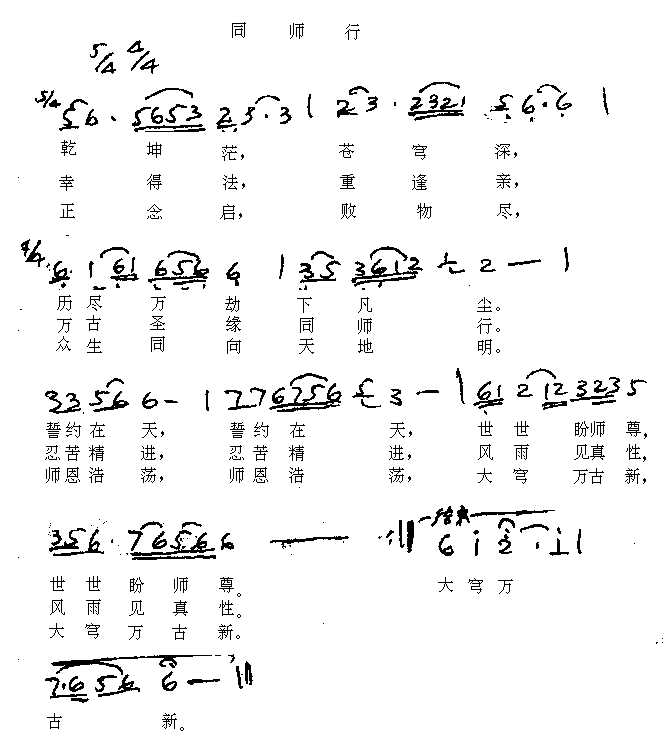 同 师 行
5/4 4/4
5/4 5 6 · 5653 2 3 · 3 | 2 3 · 2321 5 6 · 6 |
乾 坤 茫， 苍 穹 深，
幸 得 法， 重 逢 亲，
正 念 启， 败 物 尽，
4/4 6 1 61 656 6 | 35 3612 2 — |
历 尽 万 劫 下 凡 尘。
万 古 圣 缘 同 师 行。
众 生 同 向 天 地 明。
33 56 6 — | 77 6756 3 — | 61 2 12 3235
誓约在 天， 誓约在 天， 世 世 盼师 尊，
忍苦精 进， 忍苦精 进， 风 雨 见真 性，
师恩浩 荡， 师恩浩 荡， 大 穹 万古 新，
356 · 76566 6 — :|| 结束 6 i 2 · i |
世 世 盼 师 尊。 大 穹 万
风 雨 见 真 性。
大 穹 万 古 新。
7·6 56 6 — ||
古 新。